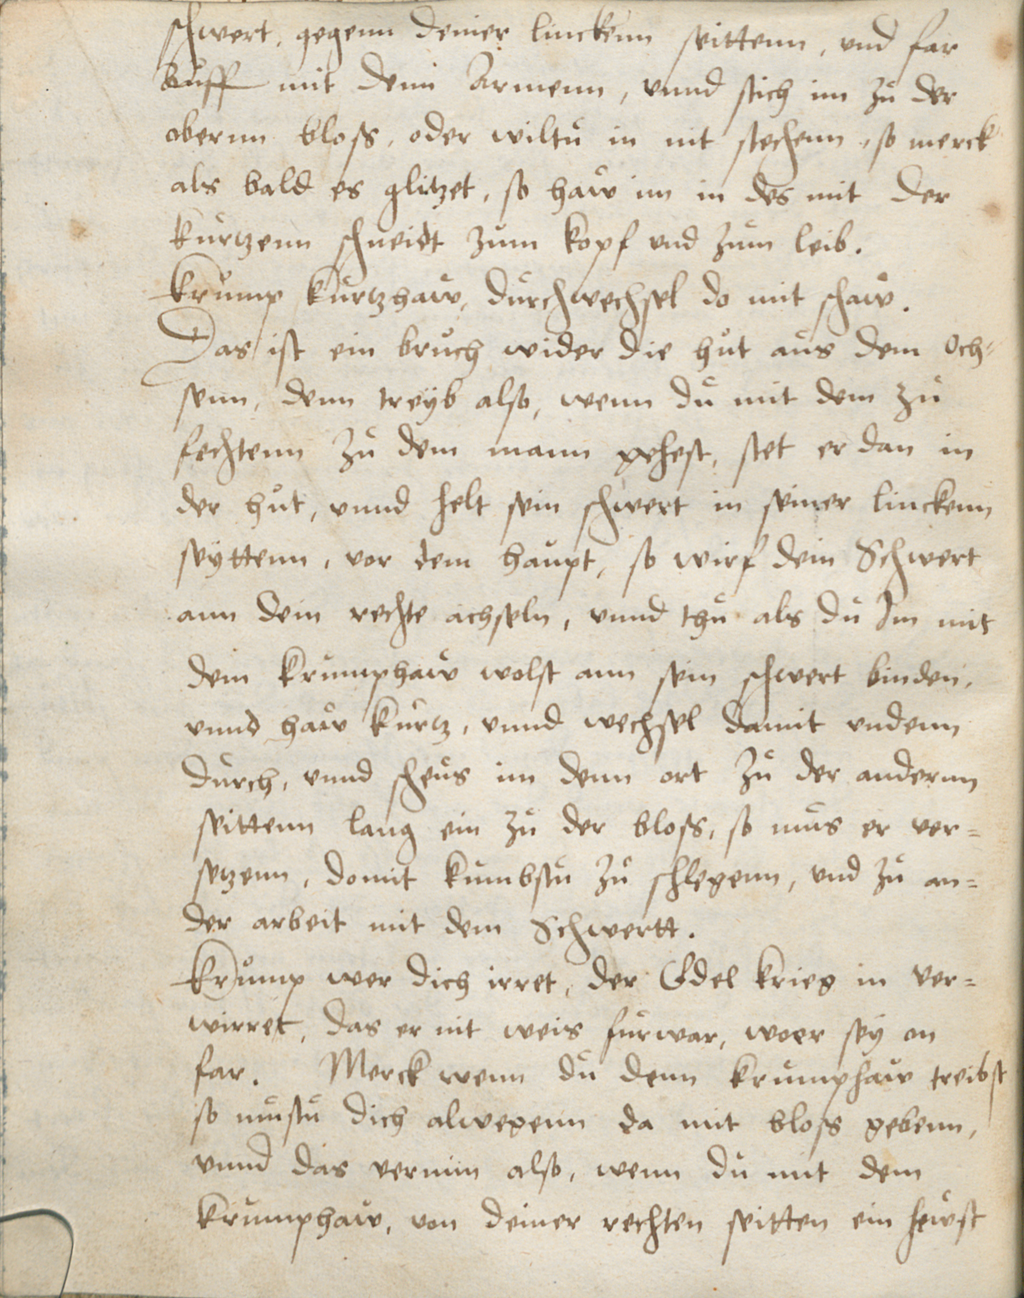 schwert, gegenn deiner linckenn seittenn, vnd far
auff mit denn Armenn, vnnd stich im zů der
obernn bloss, oder wiltů in nit stechenn, so merck
als bald es glitzet, so haw im in des mit der
kurtzenn schneidt zům kopf vnd zům leib.
Krůmp kůrtzhaw, důrchwechsel do mit schaw.
Das ist ein brůch wider die hůt aůs dem Och=
senn, denn treyb also, wenn dů mit dem zů
fechtenn zů dem mann gehest, stet er dan in
der hůt, vnnd helt sein schwert in seiner linckenn
seyttenn, vor dem haůpt, so wirf dein Schwert
ann dein rechte achseln, vnnd thů als dů Im mit
dem krůmphaw wolst ann sein schwert binden,
vnnd haw kůrtz, vnnd wechsel damit vndenn
důrch, vnnd scheůs im denn ort zů der andernn
seittenn lang ein zů der bloss, so můs er ver=
setzenn, domit kůmbstů zů schlegenn, vnd zů an=
der arbeit mit dem Schwertt.
Krůmp wer dich irret, der Edel krieg in ver=
wirret, das er nit weis fůrwar, woer sey on
far. Merck wenn dů denn krůmphaw treibst
so můstů dich alwegenn da mit bloss gebenn,
vnnd das vernim also, wenn dů mit dem
krůmphaw, von deiner rechten seitten ein hewst